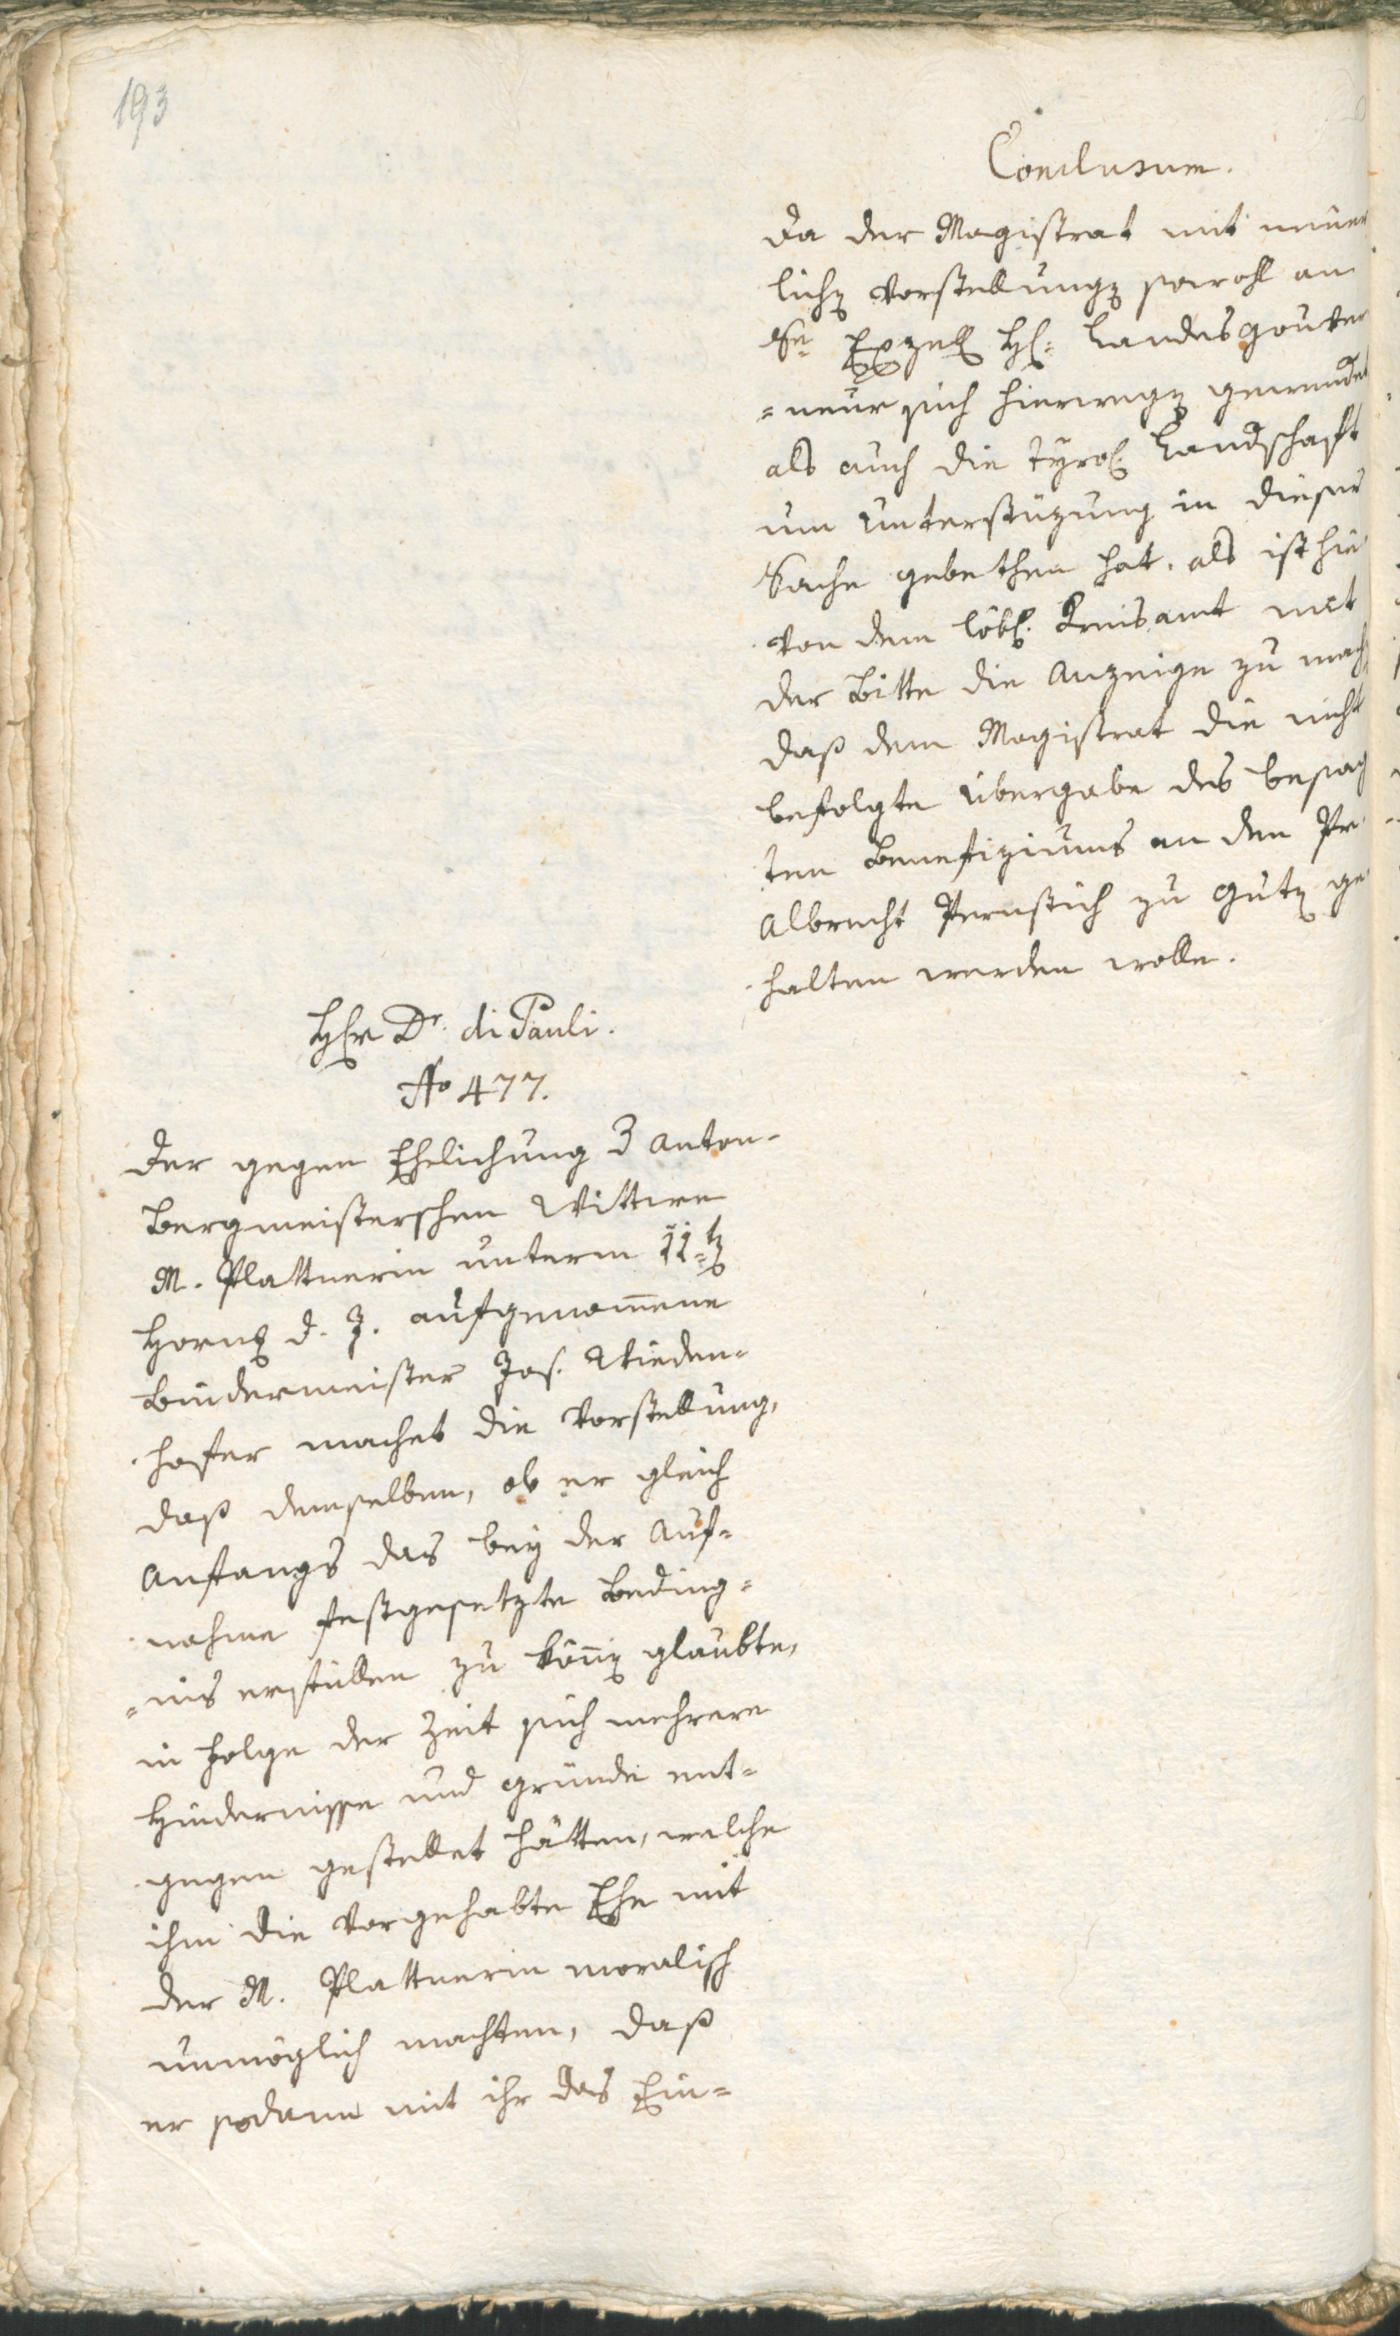 193
Conclusum.
Da der Magistrat mit neuer
lichen Vorstellungen sowohl an
Se Exzell H: Landesgouver
=neur sich hierwegen gewendet
als auch die tyrol. Landschaft
um Unterstüzung in dieser
Sache gebethen hat. als ist hie
von dem löbl. Kreisamt mit
der Bitte die Anzeige zu mach
daß dem Magistrat die nicht
befolgte Übergabe des besag
ten Benefiziums an den Pr
Albrecht Pernstich zu Guten ge
halten werden wolle.
Herr Dr. di Pauli.
No 477.
Der gegen Ehelichung d Anton-
Bergmeisterschen Wittwe
M. Plattnerin unterm 11ten
Hornung d. J. aufgenommene
Bindermeister Jos. Wieden-
hofer machet die Vorstellung,
daß demselben, ob er gleich
Anfangs das bey der Auf-
nahme festgesetzte Beding-
=nis erfüllen zu können glaubte,
in Folge der Zeit sich mehrere
Hindernisse und Gründe ent-
gegen gestellet hätten, welche
ihm die vorgehabte Ehe mit
der M. Plattnerin moralisch
unmöglich machten, daß
er sodann mit ihr das Ein-